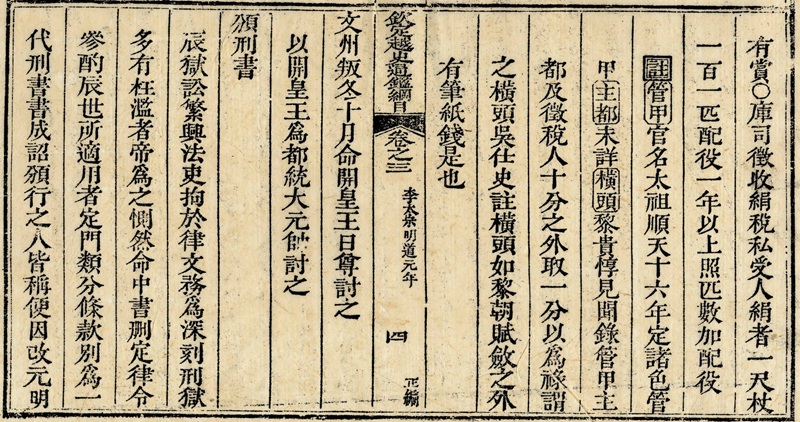 有賞○庫司徵收絹稅私受人絹者一尺杖
一百一匹配役一年以上照匹數加配役
註管甲官名太祖順天十六年定諸色管
甲主都未詳橫頭黎貴惇見聞錄管甲主
都及徵稅人十分之外取一分以為祿謂
之橫頭吳仕史註橫頭如黎朝賦斂之外
有筆紙錢是也
欽定越史通鑑綱目 卷之三 李太宗明道元年 四 正編
文州叛冬十月命開皇王日尊討之
以開皇王為都統大元帥討之
頒刑書
辰獄訟繁興法吏拘於律文務為深刻刑獄
多有枉濫者帝為之惻然命中書刪定律令
參酌辰世所適用者定門類分條款別為一
代刑書書成詔頒行之人皆稱便因改元明